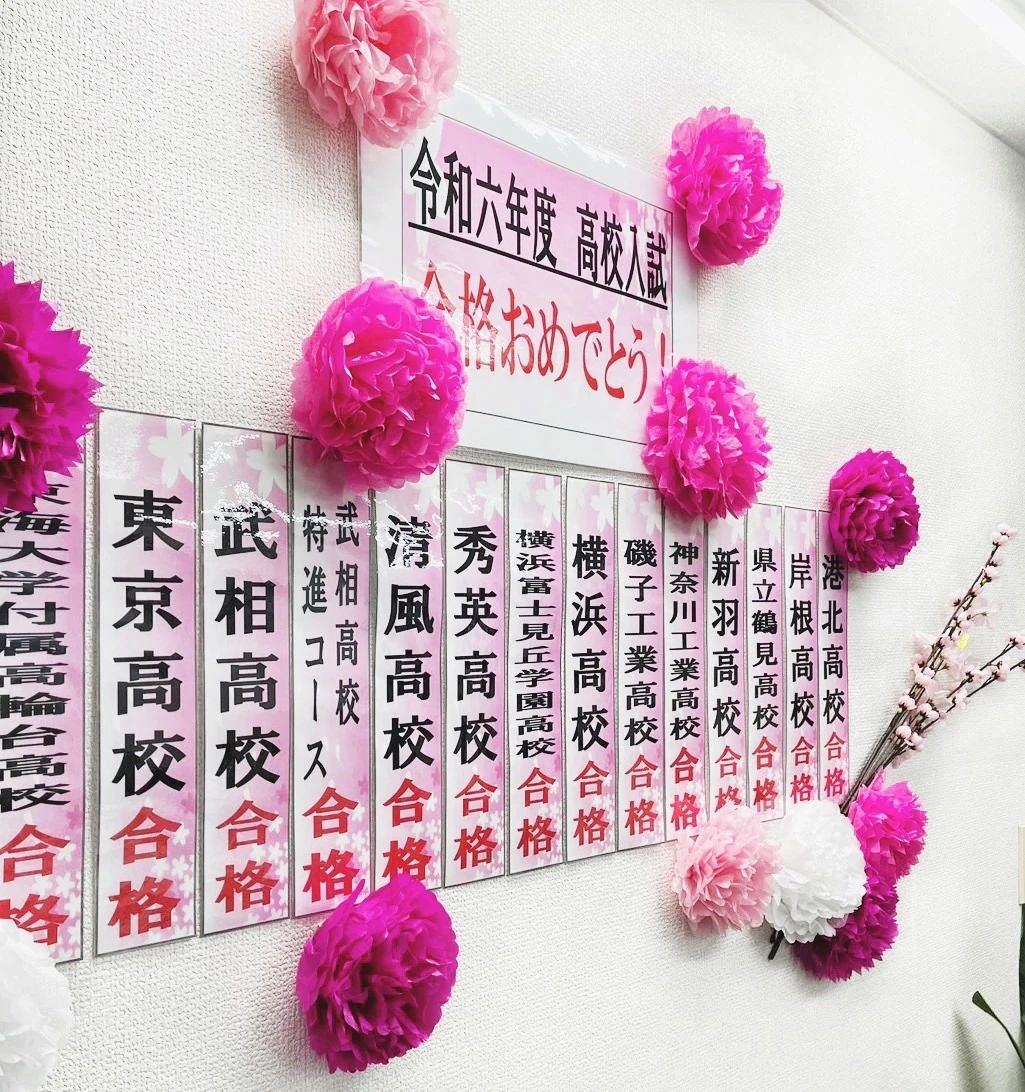 令和六年度 高校入試
合格おめでとう!
港北高校合格
岸根高校合格
県立鶴見高校合格
新羽高校合格
神奈川工業高校合格
磯子工業高校合格
横浜高校合格
横浜富士見丘学園高校合格
秀英高校合格
清風高校合格
武相高校
特進コース
合格
武相高校合格
東京高校合格
東海大学付属高輪台高校合格